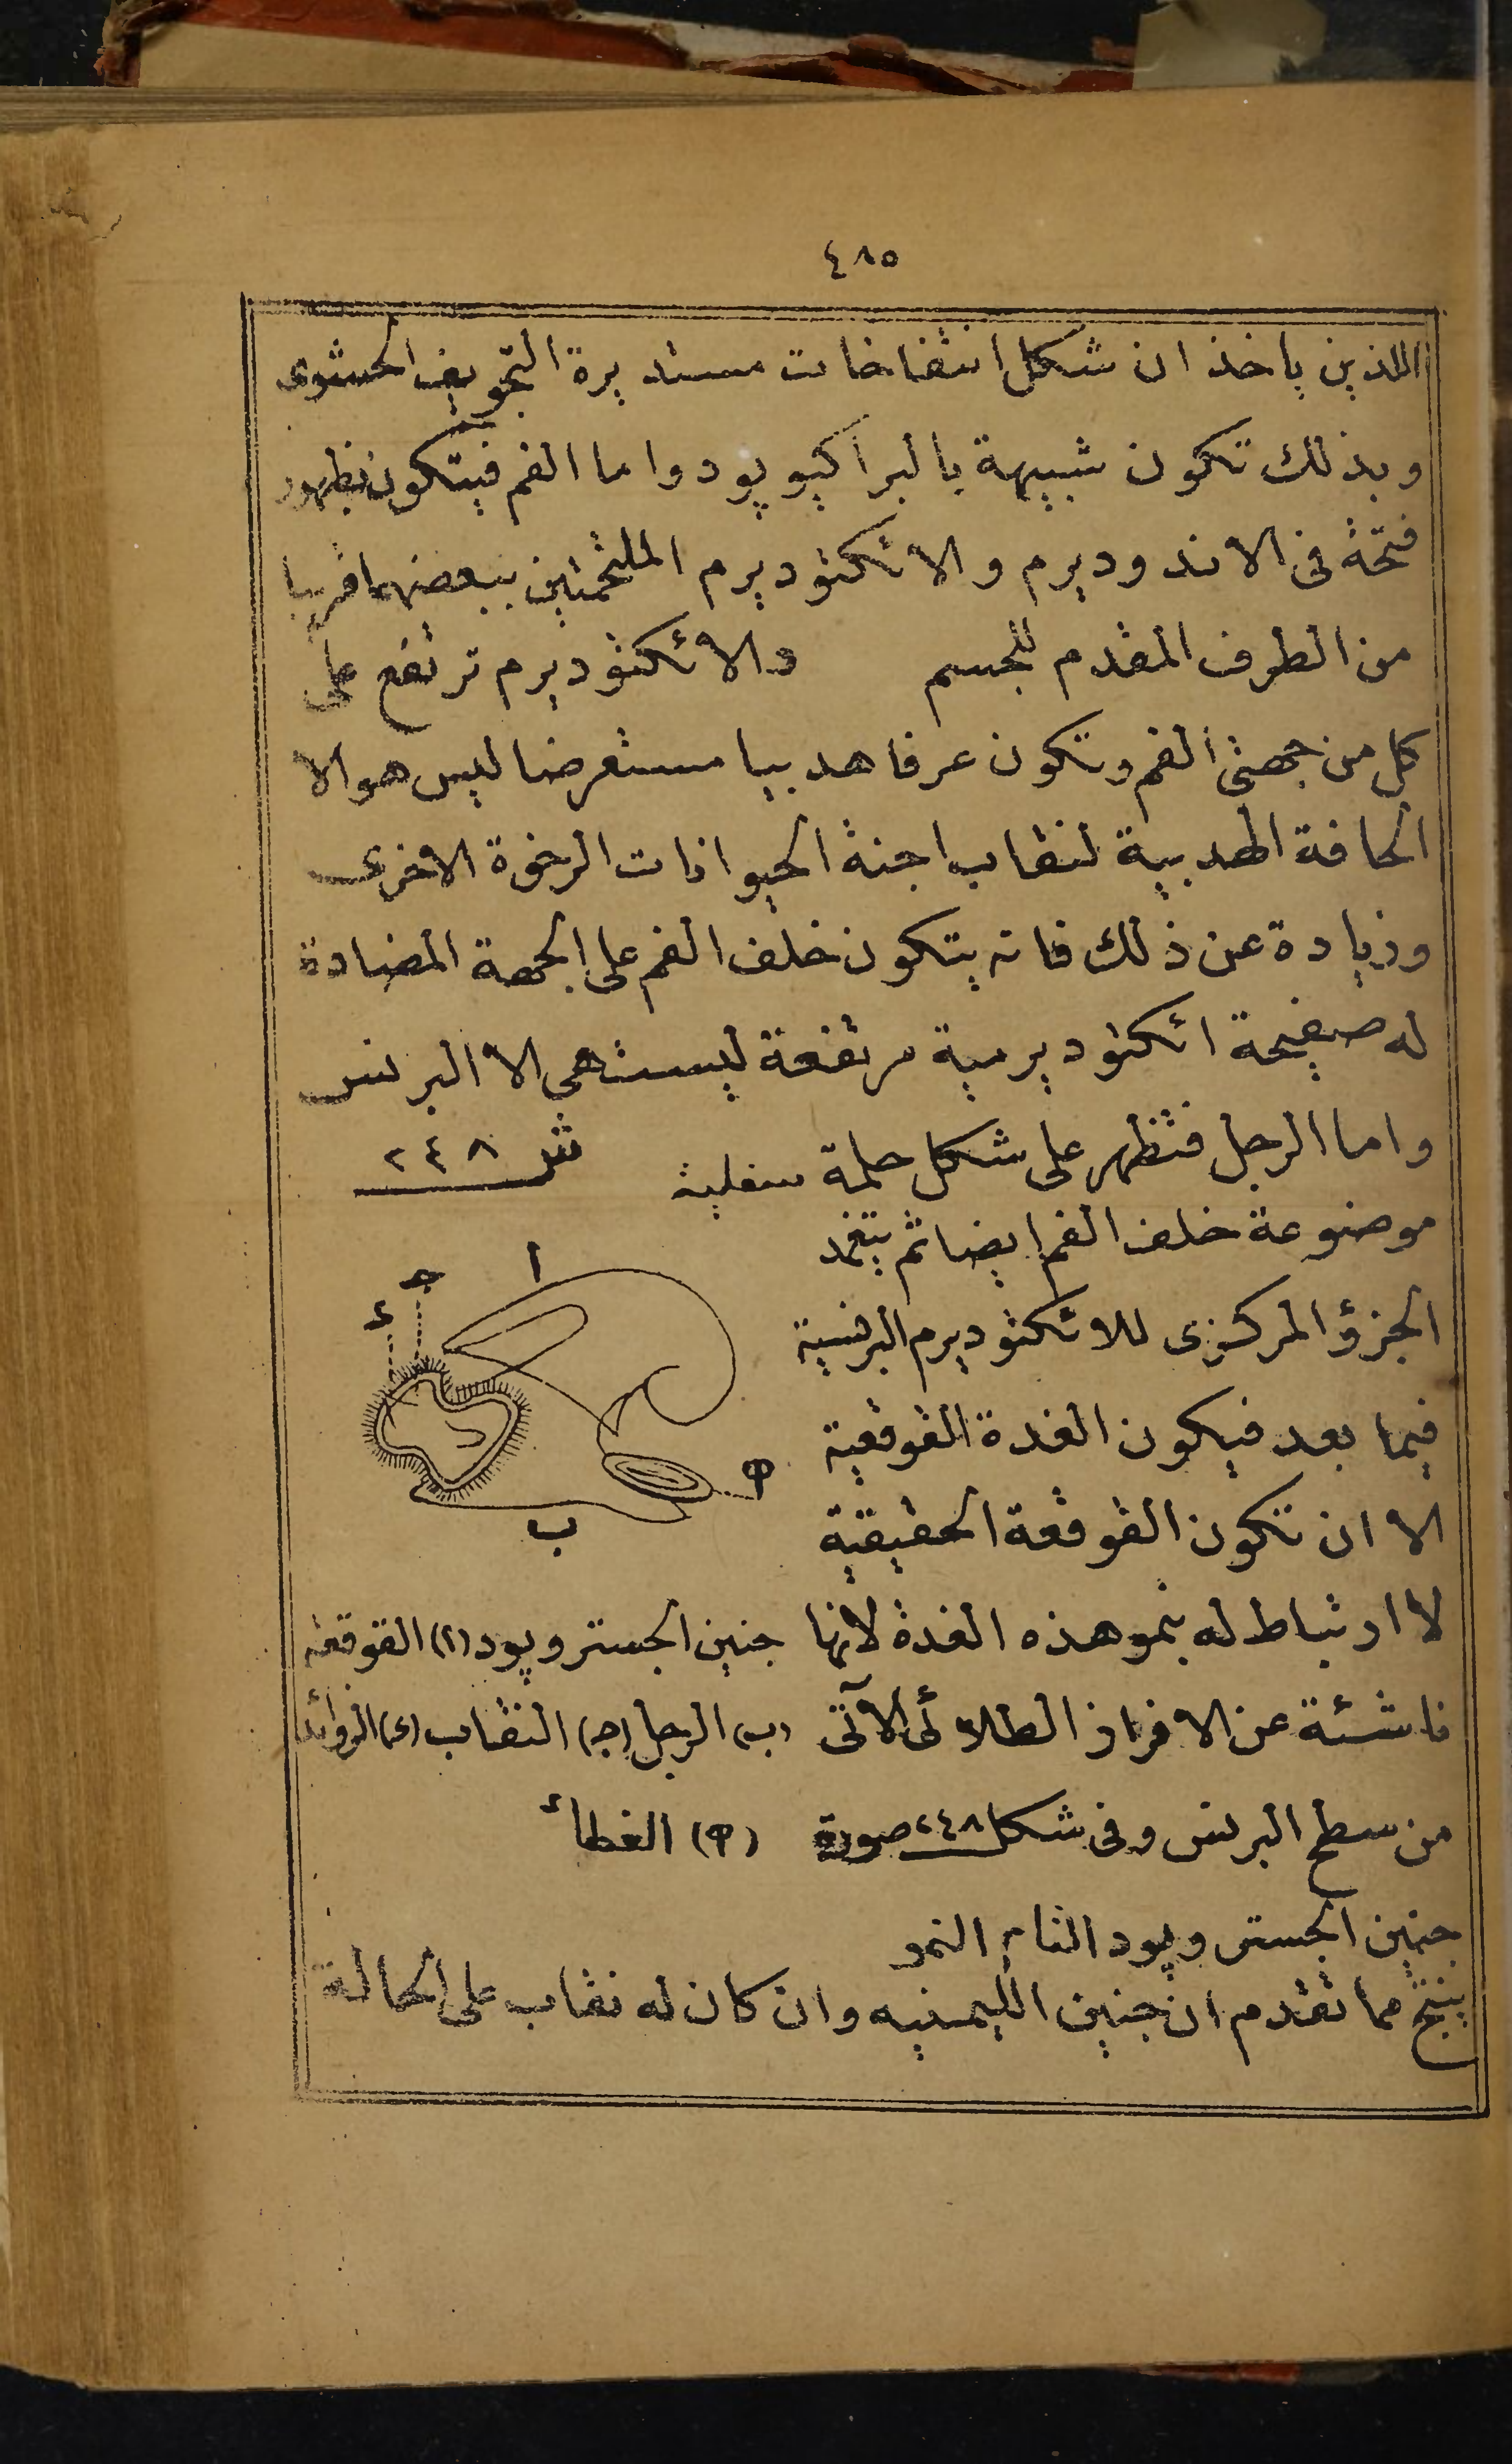 ٤٨٥
اللذين ياخذ ان شكل انتفاخات مستديرة التجويف الحشوى
وبذلك تكون شبيهة بالبراكيوپود واما الفم فيتكون بظهور
فتحة فى الاندوديرم والائكتوديرم الملتحمتين ببعضهما قريبا
من الطرف المقدم للجسم والائكتوديرم ترتفع على
كل من جهتى الفم وتكون عرفا هدبيا مستعرضا ليس هو الا
الحافة الهدبية لنقاب اجنة الحيوانات الرخوة الاخرى
وزيادة عن ذلك فانه يتكون خلف الفم على الجهة المضادة
له صفيحة ائكتوديرمية مرتفعة ليست هى الا البرنس
واما الرجل فتظهر على شكل حلمة سفلية
موضوعة خلف الفم ايضا ثم يتغمد
الجزؤ المركزى للائكتوديرم البرنسية
فيما بعد فيكون الغدة القوقعية
الا ان تكون القوقعة الحقيقية
لا ارتباط له بنمو هذه الغدة لانها
ناشئة عن الافراز الطلائى الآتى
من سطح البرنس وفى شكل ٢٤٨ صورة
جنين الجستروپود التام النمو
ش ٢٤٨
ا
ج
ء
ب
ه
جنين الجستروپود (ا) القوقعه
(ب) الرجل (ج) النقاب (ء) الزوائد
(ه) الغطاء
ينتج مما تقدم ان جنين الليمنيه وان كان له نقاب على الحالة